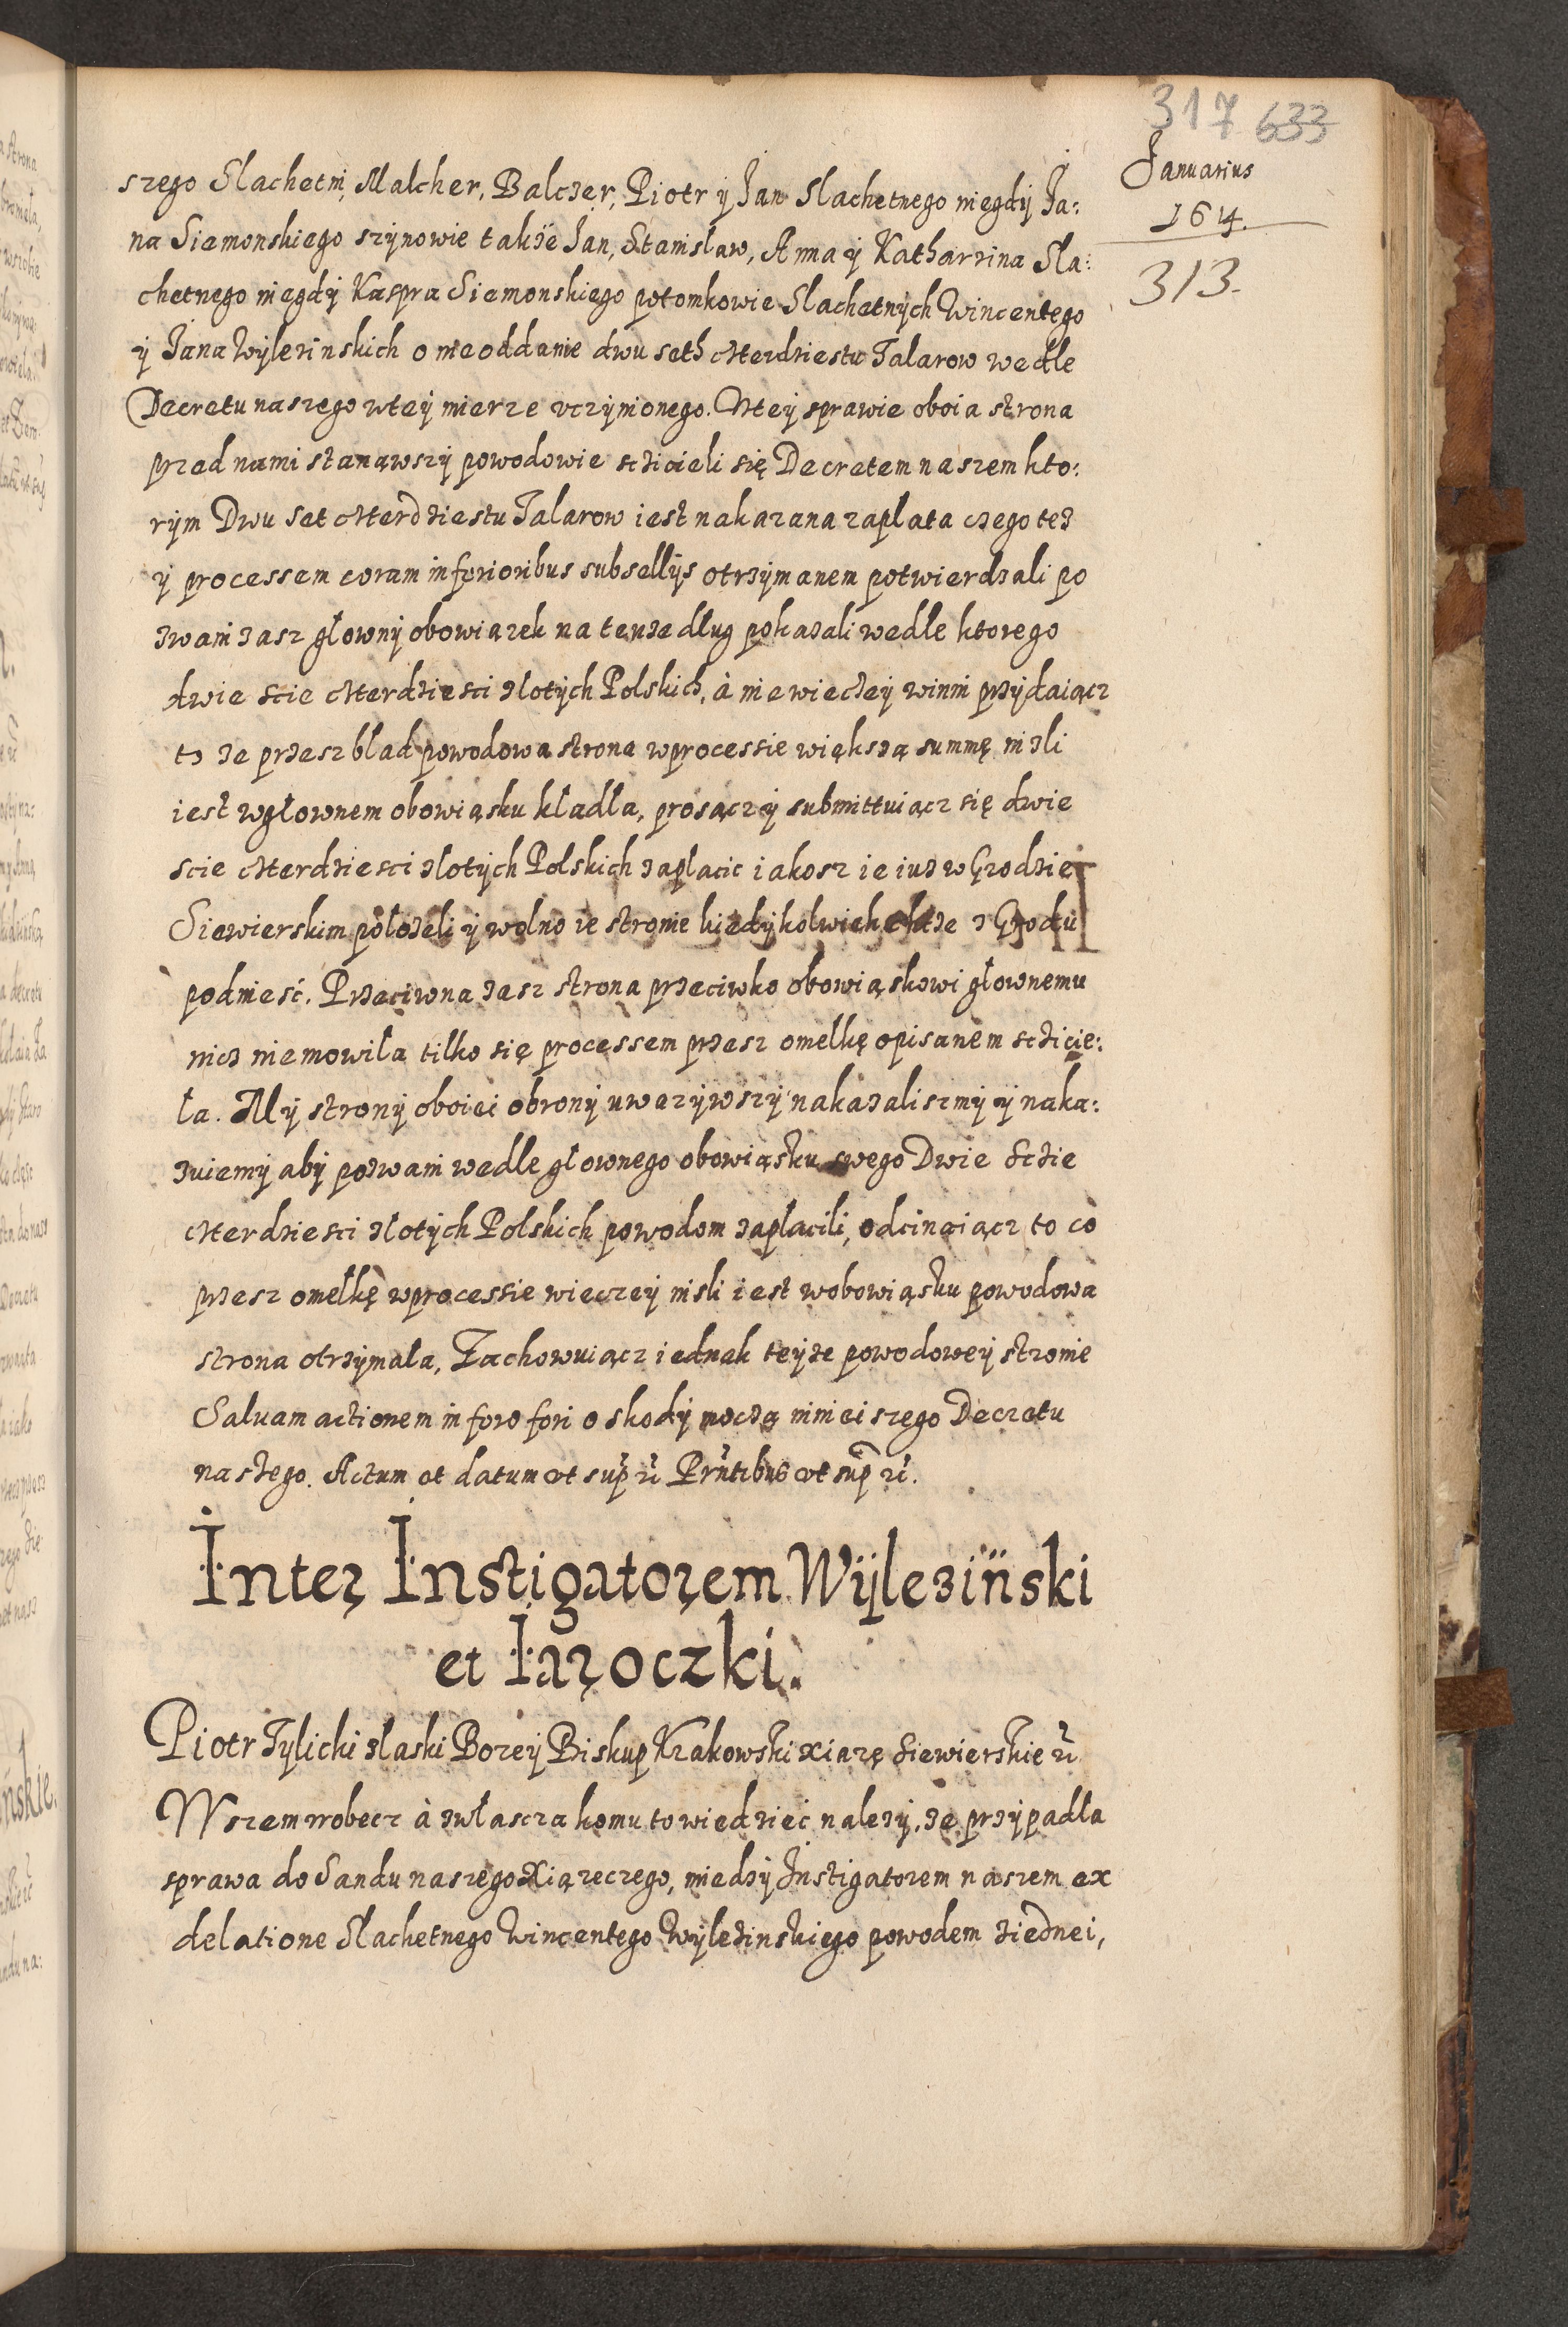 317 633
Januarius
164.
313.
szego Slachetni, Malcher, Balczer, Piotr ÿ Jan Slachetnego niegdÿ Ja:
na Siemonskiego szÿnowie także Jan, Stanisław, Anna ÿ Katharzina Sla:
chetnego niegdÿ Kaspra Siemonskiego potomkowie Slachetnÿch Wincentego
ÿ Jana Wÿlezinskich o nieoddanie dwu seth czterdziestu Talarow wedle
Decretu naszego wteÿ mierze vczÿnionego. Wteÿ sprawie oboia strona
przed nami stanąwszÿ powodowie sczicieli się Decretem naszem kto:
rÿm Dwu set czterdziestu Talarow iest nakazana zaplata czego też
ÿ processem coram inferioribus subsellÿs otrzÿmanem potwierdzali po
zwani zasz głownÿ obowiązek na tenże dług pokazali wedle ktorego
dwie scie czterdziesci zlotÿch Polskich, à niewieczeÿ winni przÿdaiącz
to ze przesz blad powodowa strona wprocessie większą summę nizli
iest wgłownem obowiąsku kładła, prosącz ÿ submittuiącz się dwie
scie czterdziesci zlotÿch Polskich zaplacic iakosz ie iuz w Grodzie
Siewierskim położeli ÿ wolno ie stronie kiedÿkolwiek chcze z Grodu
podniesć. Przeciwna zasz strona przeciwko obowiąskowi głownemu
nicz niemowiła tilko się processem przesz omelkę opisanem sczicie:
ła. Mÿ stronÿ oboiei obronÿ uwazÿwszÿ nakazaliszmÿ ÿ naka:
zuiemÿ abÿ pozwani wedle głownego obowiąsku swego Dwie Sczie
czterdziesci złotÿch Polskich powodom zapłacili, odcinaiącz to co
przesz omełkę wprocessie wieczeÿ nisli iest wobowiąsku powodowa
strona otrzÿmała, Zachowuiącz iednak teÿze powodoweÿ stronie
Salvam actionem in foro fori o skodÿ moczą ninieiszego Decretu
naszego. Actum et datum vt supr̃ Prñtibus vt supr̃.
Inter Instigatorem Wÿlezinski
et Jaroczki.
Piotr Tylicki złaski Bozeÿ Biskup Krakowski xiązę Siewierskie
Wszem wobecz à zwłascza komu to wiedzieć należÿ, ze przÿpadła
sprawa do Sandu naszego Xiązeczego, miedzÿ Instigatorem naszem ex
delatione Slachetnego Wincentego Wÿlezinskiego powodem ziednei,